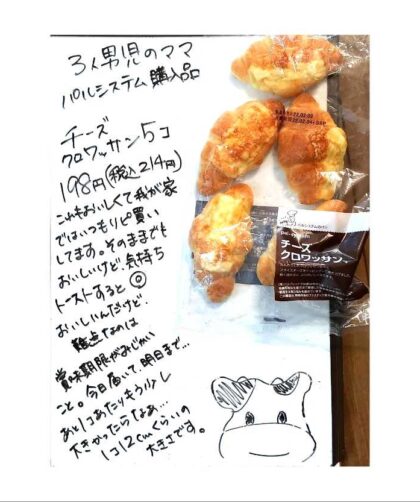 3人男児のママ
パルシステム購入品
チーズ
クロワッサン5コ
198円(税込214円)
これもおいしくて我が家
ではいつもリピ買い
してます。そのままでも
おいしいけど、気持ち
トーストすると◎
おいしいんだけど、
難点なのは
賞味期限がみじかい
こと。今日届いて、明日まで…
あと1コあたりもう少し
大きかったらなぁ…
1コ12cmくらいの
大きさです。
チーズ
クロワッサン